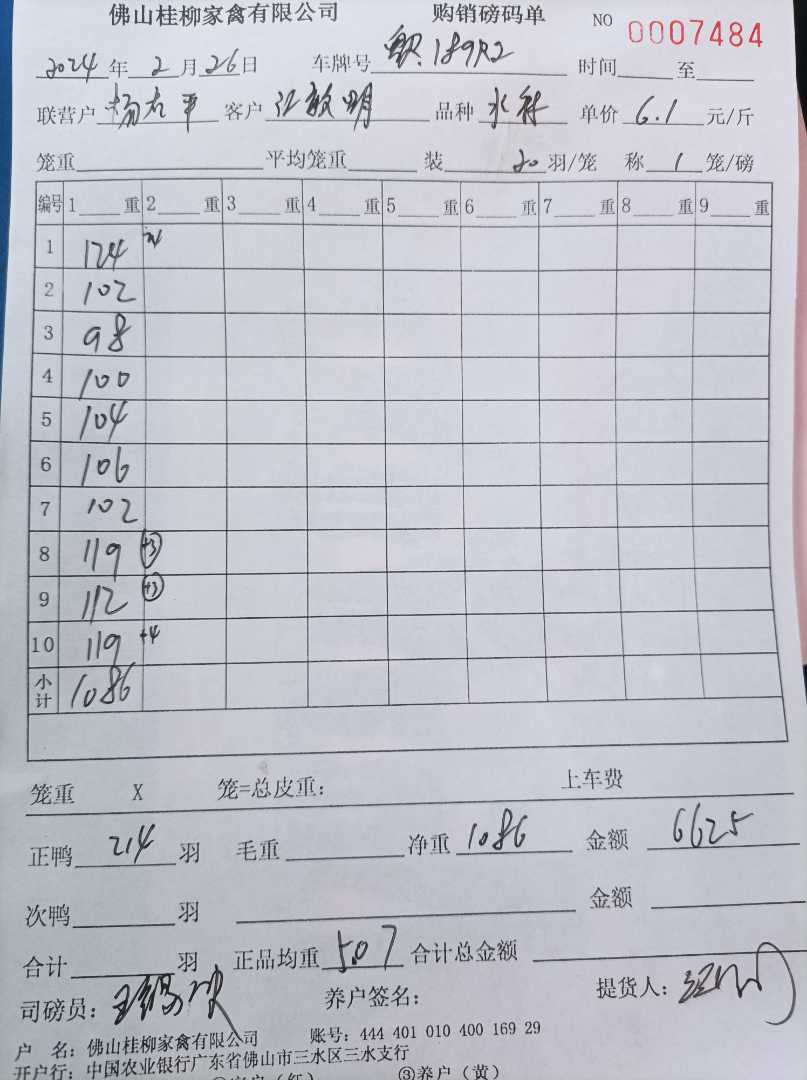 佛山桂柳家禽有限公司 购销磅码单 NO 0007484
2024年2月26日 车牌号 189R2 时间 至
联营户 杨志平 客户 江敏明 品种 水 单价 6.1 元/斤
笼重 平均笼重 装 20 羽/笼 称 1 笼/磅
编号 1 重 2 重 3 重 4 重 5 重 6 重 7 重 8 重 9 重
1 124
2 102
3 98
4 100
5 104
6 106
7 102
8 119 +3
9 112 +3
10 119 +4
小计 1086
笼重 X 笼=总皮重: 上车费
正鸭 214 羽 毛重 净重 1086 金额 6625
次鸭 羽 金额
合计 羽 正品均重 5.07 合计总金额
司磅员: 王 养户签名: 提货人:
户 名: 佛山桂柳家禽有限公司 账号: 444 401 010 400 169 29
开户行: 中国农业银行广东省佛山市三水区三水支行
②客户(红) ③养户(黄)